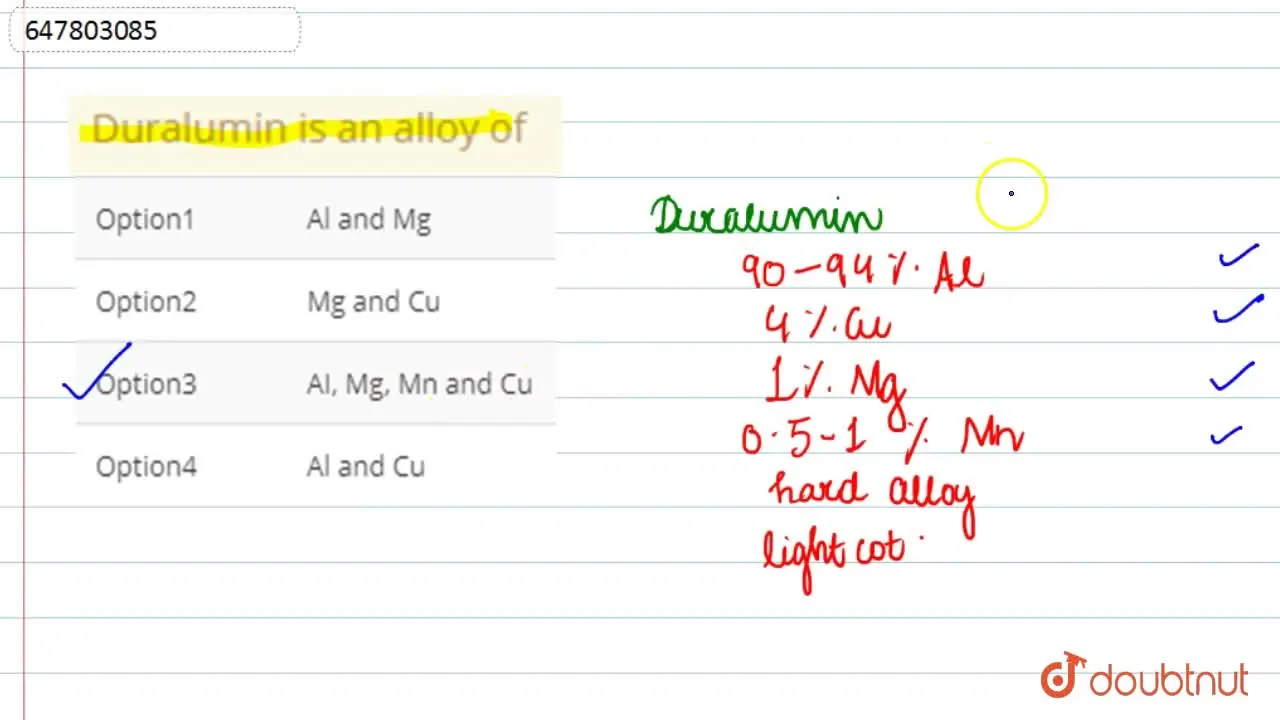 647803085
Duralumin is an alloy of
Option1 Al and Mg
Option2 Mg and Cu
Option3 Al, Mg, Mn and Cu
Option4 Al and Cu
Duralumin
90-94%. Al
4%. Cu
1%. Mg
0.5-1 %. Mn
hard alloy
light cot
doubtnut